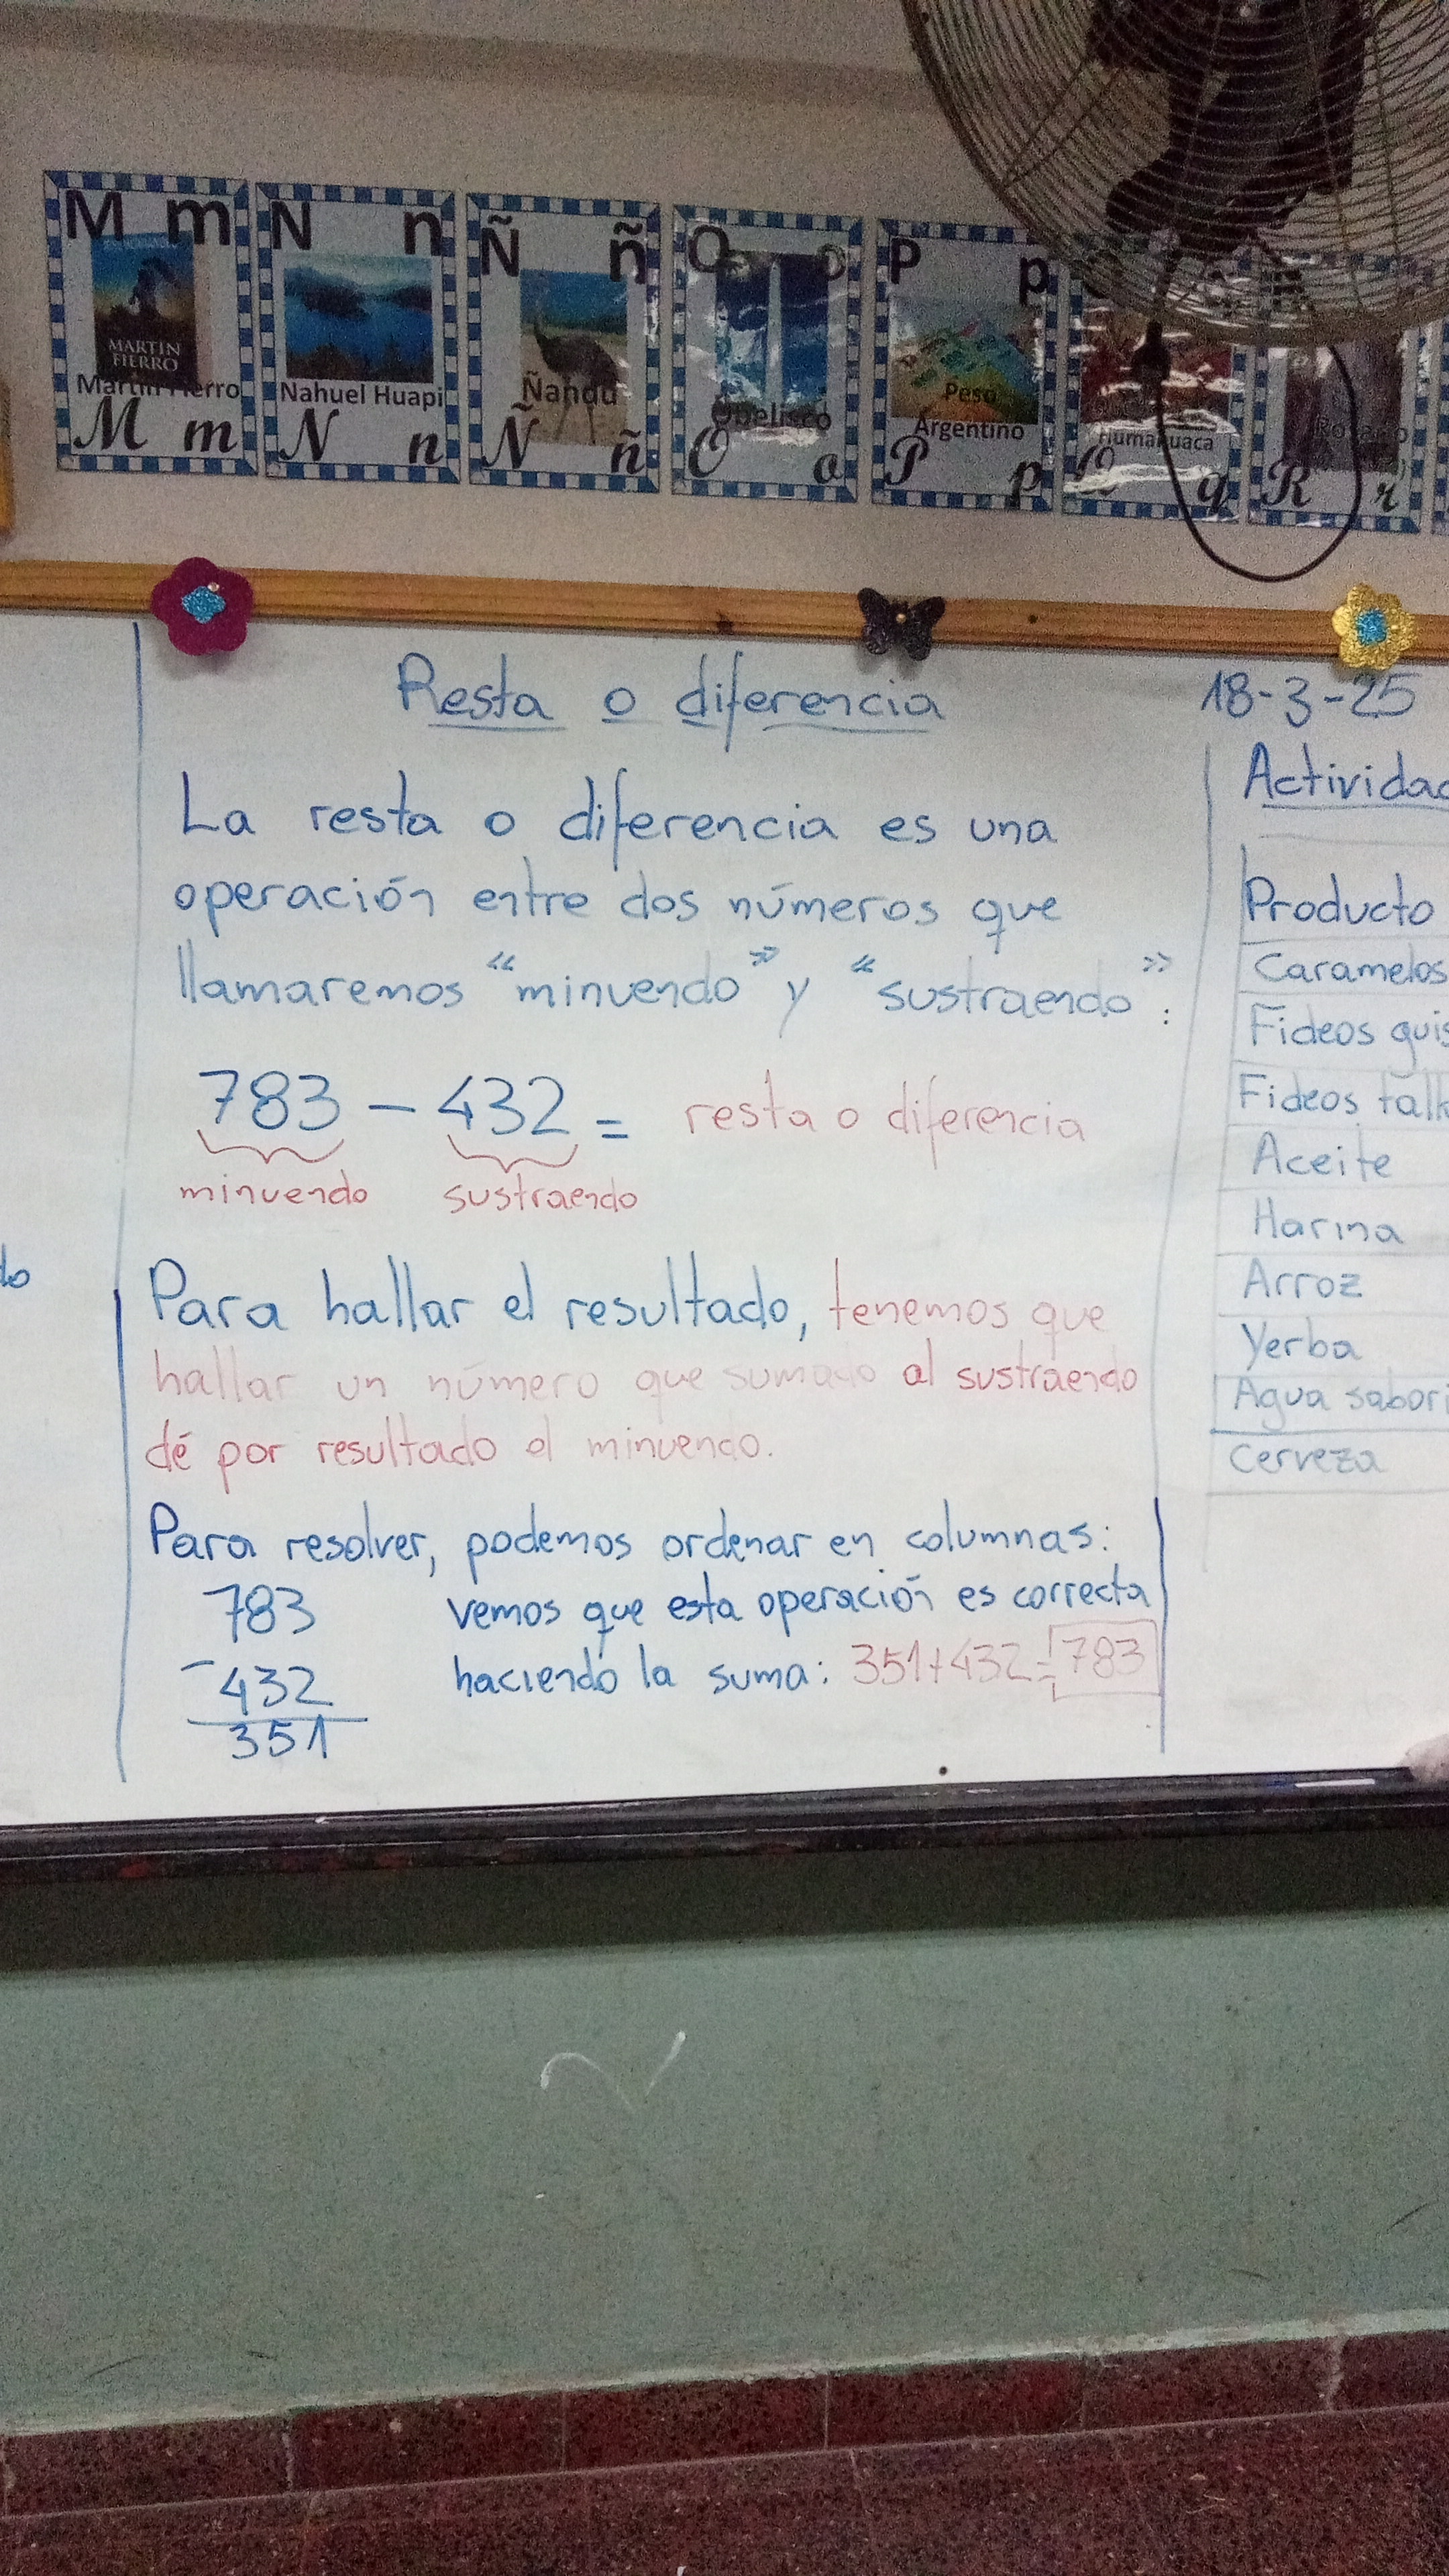 M m
MARTIN
FIERRO
M m
N n
Nahuel Huapi
N n
Ñ ñ
Ñandú
Ñ ñ
O o
Obelisco
O o
P p
Peso
Argentino
P p
Humahuaca
Q q
R r
Resta o diferencia
La resta o diferencia es una
operación entre dos números que
llamaremos “minuendo” y “sustraendo”:
783 - 432 = resta o diferencia
minuendo sustraendo
Para hallar el resultado, tenemos que
hallar un número que sumado al sustraendo
dé por resultado el minuendo.
Para resolver, podemos ordenar en columnas:
783 vemos que esta operación es correcta
- 432 haciendo la suma: 351+432=783
351
18-3-25
Activida
Producto
Caramelos
Fideos guis
Fideos tall
Aceite
Harina
Arroz
Yerba
Agua sabori
Cerveza